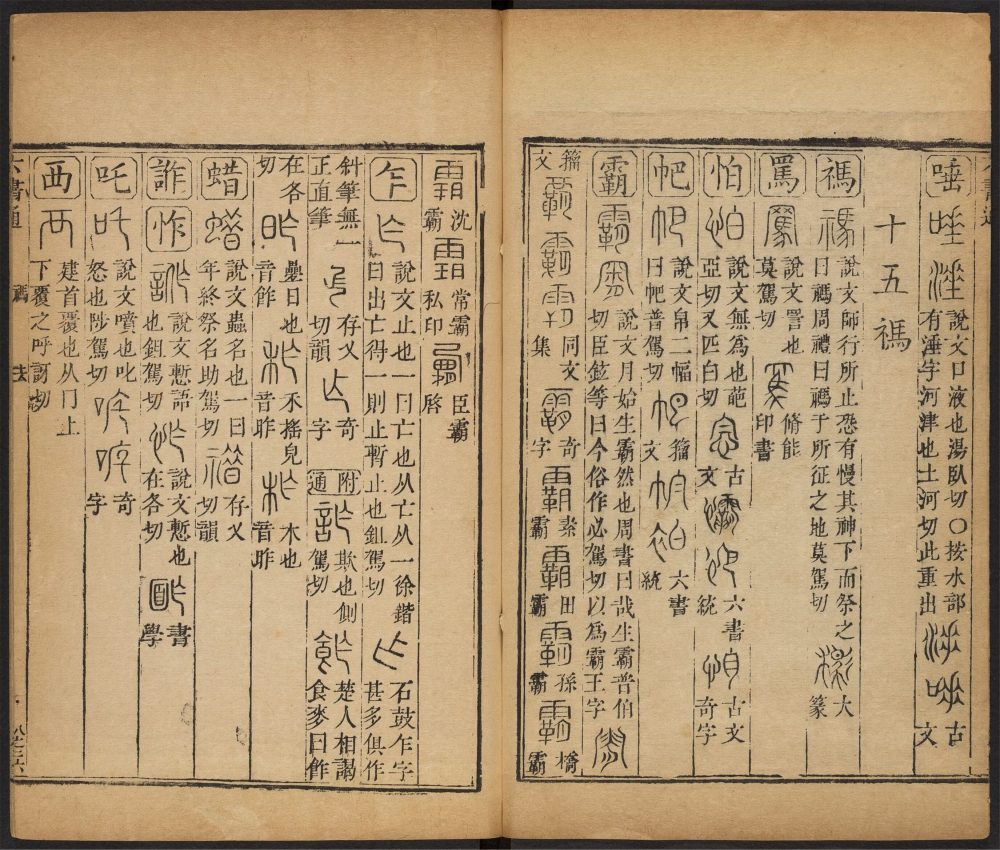 唾 說文口液也湯臥切〇按水部有涶字河津也土河切此重出 古文
十五禡
禡 說文師行所止恐有慢其神下而祭之曰禡周禮曰禡于所征之地莫駕切 大篆
罵 說文詈也莫駕切 脩能印書
怕 說文無爲也葩亞切又匹白切 古文 六書統 古文奇字
帊 說文帛二幅曰帊普駕切 籀文 六書統
霸 說文月始生霸然也周書曰哉生霸普伯切臣鉉等曰今俗作必駕切以爲霸王字
籀文 同文集 奇字 素霸 田霸 孫霸 橋霸
沈霸 常霸私印 臣霸 唇
乍 說文止也一曰亡也从亡从一徐鍇曰出亡得一則止暫止也鉏駕切 石鼓乍字甚多俱作
斜筆無一正直筆 存乂切韻 奇字 附通 欺也側駕切 楚人相謁食麥曰飵
在各切 壘日也音飵 禾搖皃音昨 木也音昨
蜡 說文蟲名也一曰年終祭名助駕切 存乂切韻
詐 怍 說文慙語也鉏駕切 說文慙也在各切 書學
吒 說文噴也叱怒也陟駕切 奇字
襾 建首覆也从冂上下覆之呼訝切
六書通 禡 去 八之三六